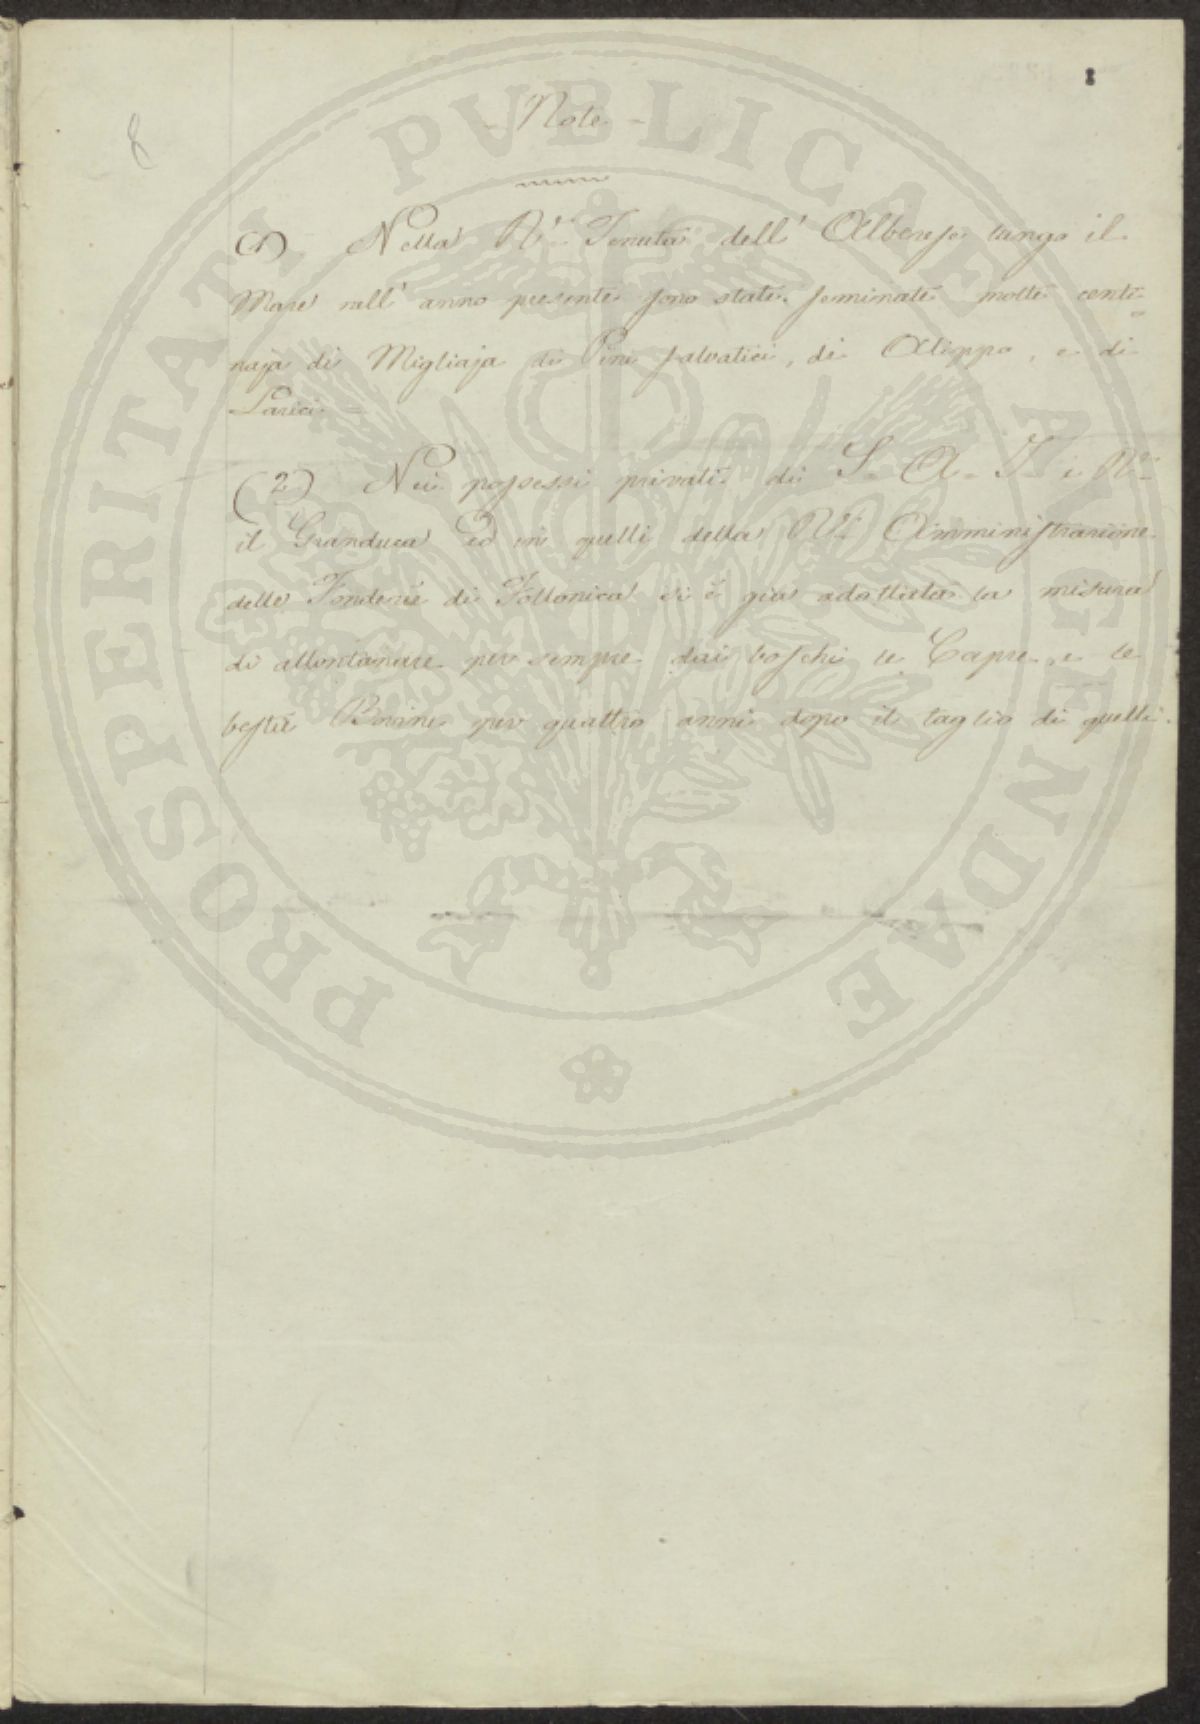 8
- Note -
(1) Nella R.ͤ Tenuta dell' Alberese lungo il
Mare nell' anno presente sono state seminate molte centi-
naja di Migliaja di Pini salvatici, di Aleppo, e di
Larici =
(2) Nei possessi privati di S. A. I. e R.
il Granduca ed in quelli della R. Amministrazione
delle Fonderie di Follonica si è già adottata la misura
di allontanare per sempre dai boschi le Capre e le
bestie Bovine per quattro anni dopo il taglio di quelli.
PROSPERITATI PVBLICAE AVGENDAE